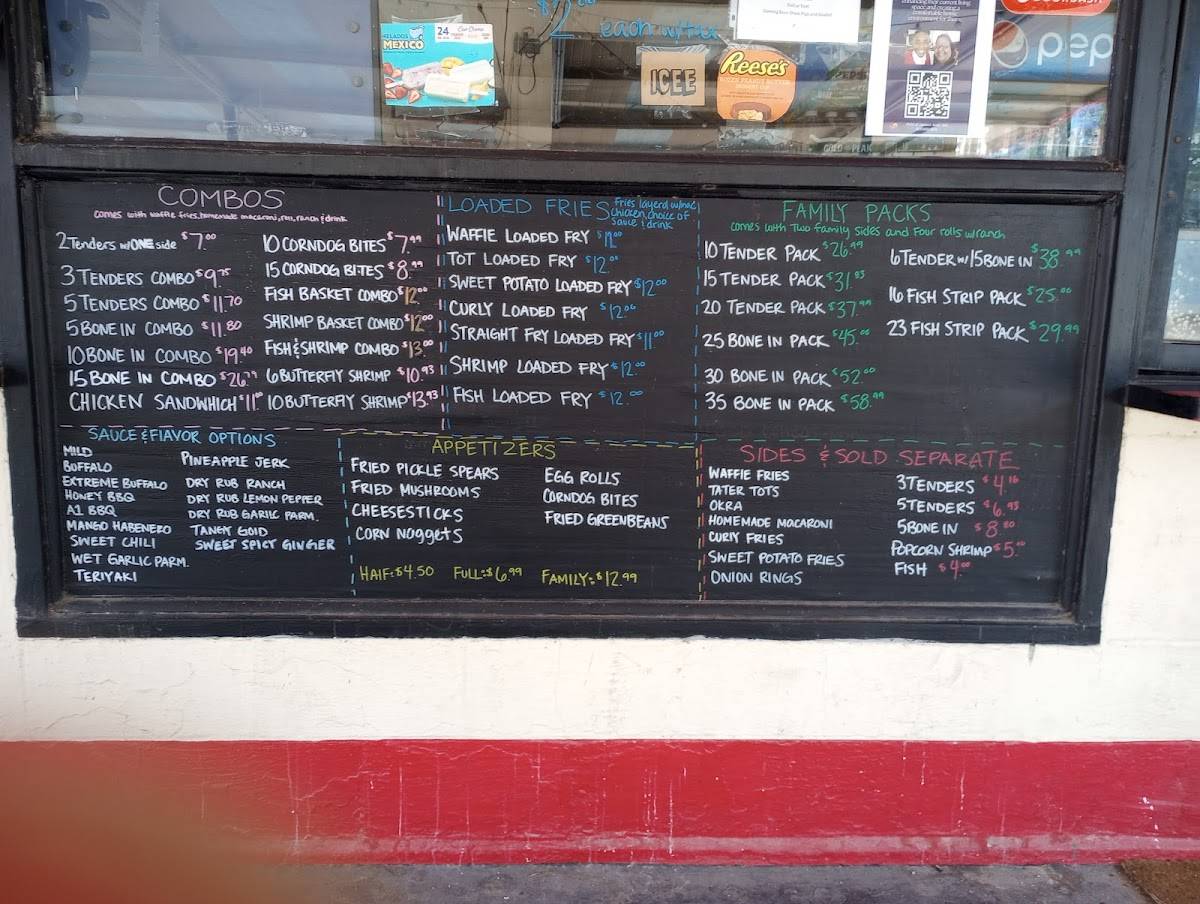 $2.00 each w/tax
HELADOS
MEXICO
24
ICEE
Reese's
pep
GOLD PEAK
COMBOS
comes with waffle fries, homemade macaroni, roll, ranch & drink
2 Tenders w/ONE side $7.00
3 TENDERS COMBO $9.75
5 TENDERS COMBO $11.70
5 BONE IN COMBO $11.80
10 BONE IN COMBO $19.40
15 BONE IN COMBO $26.79
CHICKEN SANDWHICH $11.00
10 CORNDOG BITES $7.99
15 CORNDOG BITES $8.99
FISH BASKET COMBO $12.00
SHRIMP BASKET COMBO $12.00
FISH & SHRIMP COMBO $13.00
6 BUTTERFLY SHRIMP $10.93
10 BUTTERFLY SHRIMP $13.93
LOADED FRIES
Fries layerd w/mac,
chicken, choice of
sauce & drink
WAFFLE LOADED FRY $12.00
TOT LOADED FRY $12.00
SWEET POTATO LOADED FRY $12.00
CURLY LOADED FRY $12.00
STRAIGHT FRY LOADED FRY $11.00
SHRIMP LOADED FRY $12.00
FISH LOADED FRY $12.00
FAMILY PACKS
comes with Two family sides and Four rolls w/ranch
10 TENDER PACK $26.99
15 TENDER PACK $31.93
20 TENDER PACK $37.99
25 BONE IN PACK $45.00
30 BONE IN PACK $52.00
35 BONE IN PACK $58.99
6 TENDER w/15 BONE IN $38.99
16 FISH STRIP PACK $25.00
23 FISH STRIP PACK $29.99
SAUCE & FLAVOR OPTIONS
MILD
BUFFALO
EXTREME BUFFALO
HONEY BBQ
A1 BBQ
MANGO HABENERO
SWEET CHILI
WET GARLIC PARM.
TERIYAKI
PINEAPPLE JERK
DRY RUB RANCH
DRY RUB LEMON PEPPER
DRY RUB GARLIC PARM.
TANGY GOLD
SWEET SPICY GINGER
APPETIZERS
FRIED PICKLE SPEARS
FRIED MUSHROOMS
CHEESESTICKS
CORN NOGGETS
EGG ROLLS
CORNDOG BITES
FRIED GREENBEANS
HALF: $4.50 FULL: $6.99 FAMILY: $12.99
SIDES & SOLD SEPARATE
WAFFLE FRIES
TATER TOTS
OKRA
HOMEMADE MACARONI
CURLY FRIES
SWEET POTATO FRIES
ONION RINGS
3 TENDERS $4.16
5 TENDERS $6.93
5 BONE IN $8.80
POPCORN SHRIMP $5.00
FISH $4.00